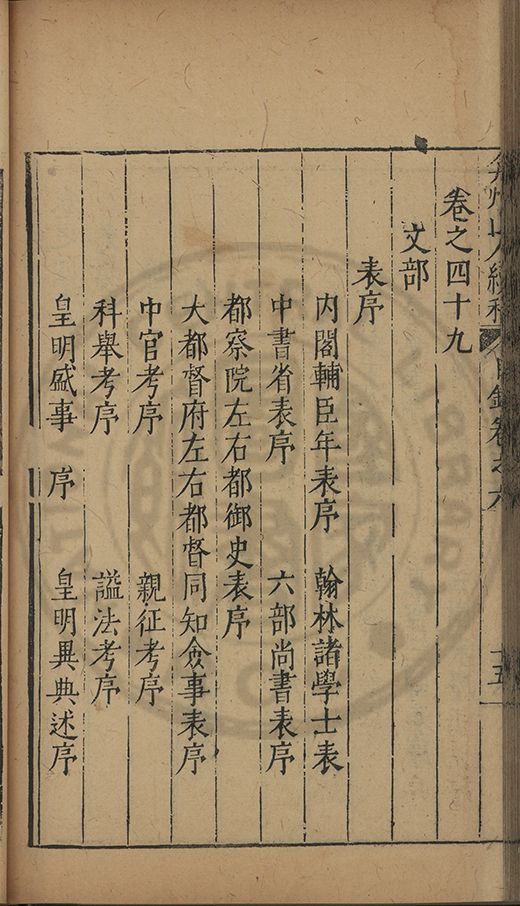 弇州山人續稿 目錄卷之六 十五
卷之四十九
文部
表序
內閣輔臣年表序 翰林諸學士表
中書省表序 六部尚書表序
都察院左右都御史表序
大都督府左右都督同知僉事表序
中官考序 親征考序
科舉考序 謚法考序
皇明盛事 序 皇明異典述序